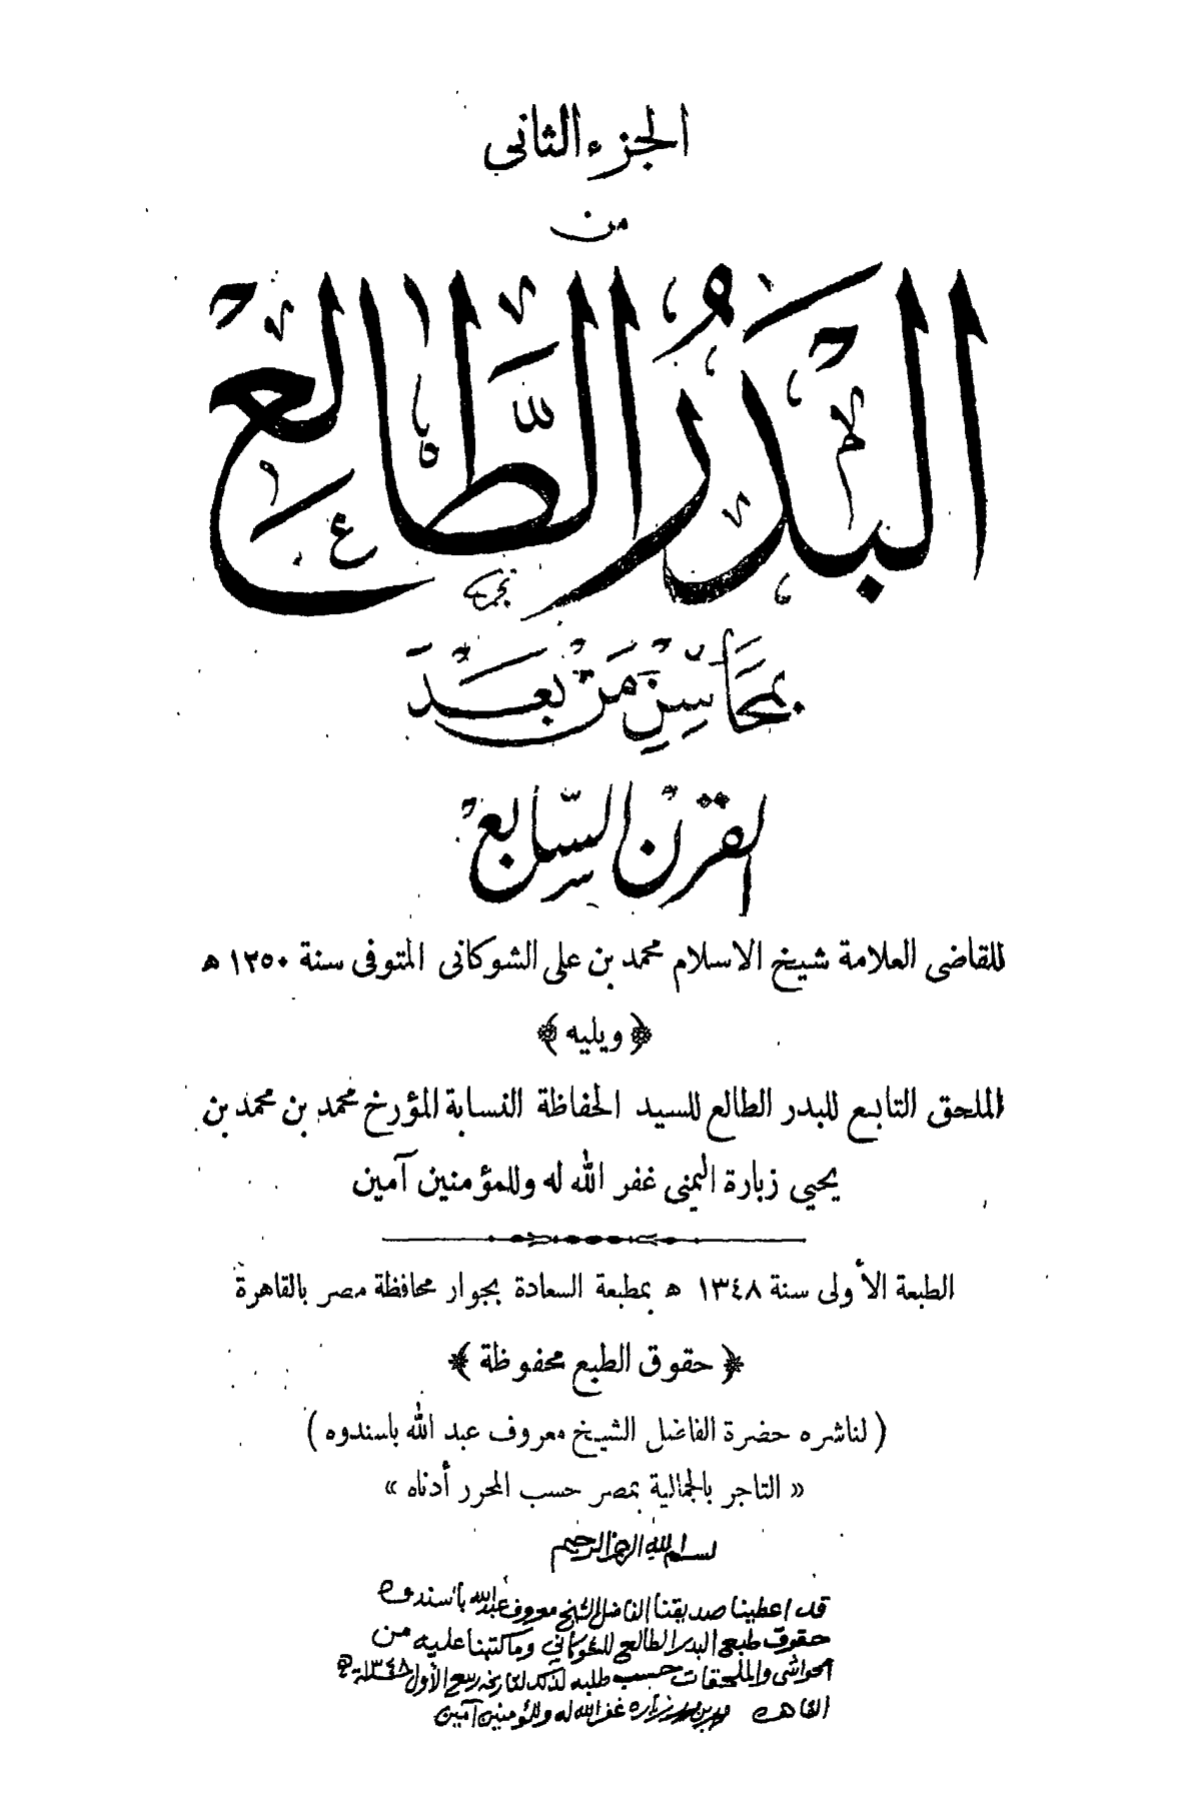 الجزء الثاني
من
البَدْرُ الطَّالِعْ
بمَحَاسِنِ مَنْ بَعْدَ
القَرْنِ السَّابِعْ
للقاضى العلامة شيخ الاسلام محمد بن على الشوكانى المتوفى سنة ١٢٥٠ ه
﴿ ويليه ﴾
الملحق التابع للبدر الطالع للسيد الحفاظة النسابة المؤرخ محمد بن محمد بن
يحيي زبارة اليمنى غفر الله له وللمؤمنين آمين
الطبعة الأولى سنة ١٣٤٨ ه بمطبعة السعادة بجوار محافظة مصر بالقاهرة
﴿ حقوق الطبع محفوظة ﴾
( لناشره حضرة الفاضل الشيخ معروف عبد الله باسندوه )
« التاجر بالجمالية بمصر حسب المحرر أدناه »
بسم الله الرحمن الرحيم
قد اعطينا صديقنا الفاضل الشيخ معروف عبد الله باسندوه
حقوق طبع البدر الطالع للشوكاني وما كتبنا عليه من
الحواشي والملحقات حسب طلبه لذلك لتاريخه ربيع الأول سنة ١٣٤٨ ه
القاهره محمد بن محمد زباره غفر الله له وللمؤمنين آمين